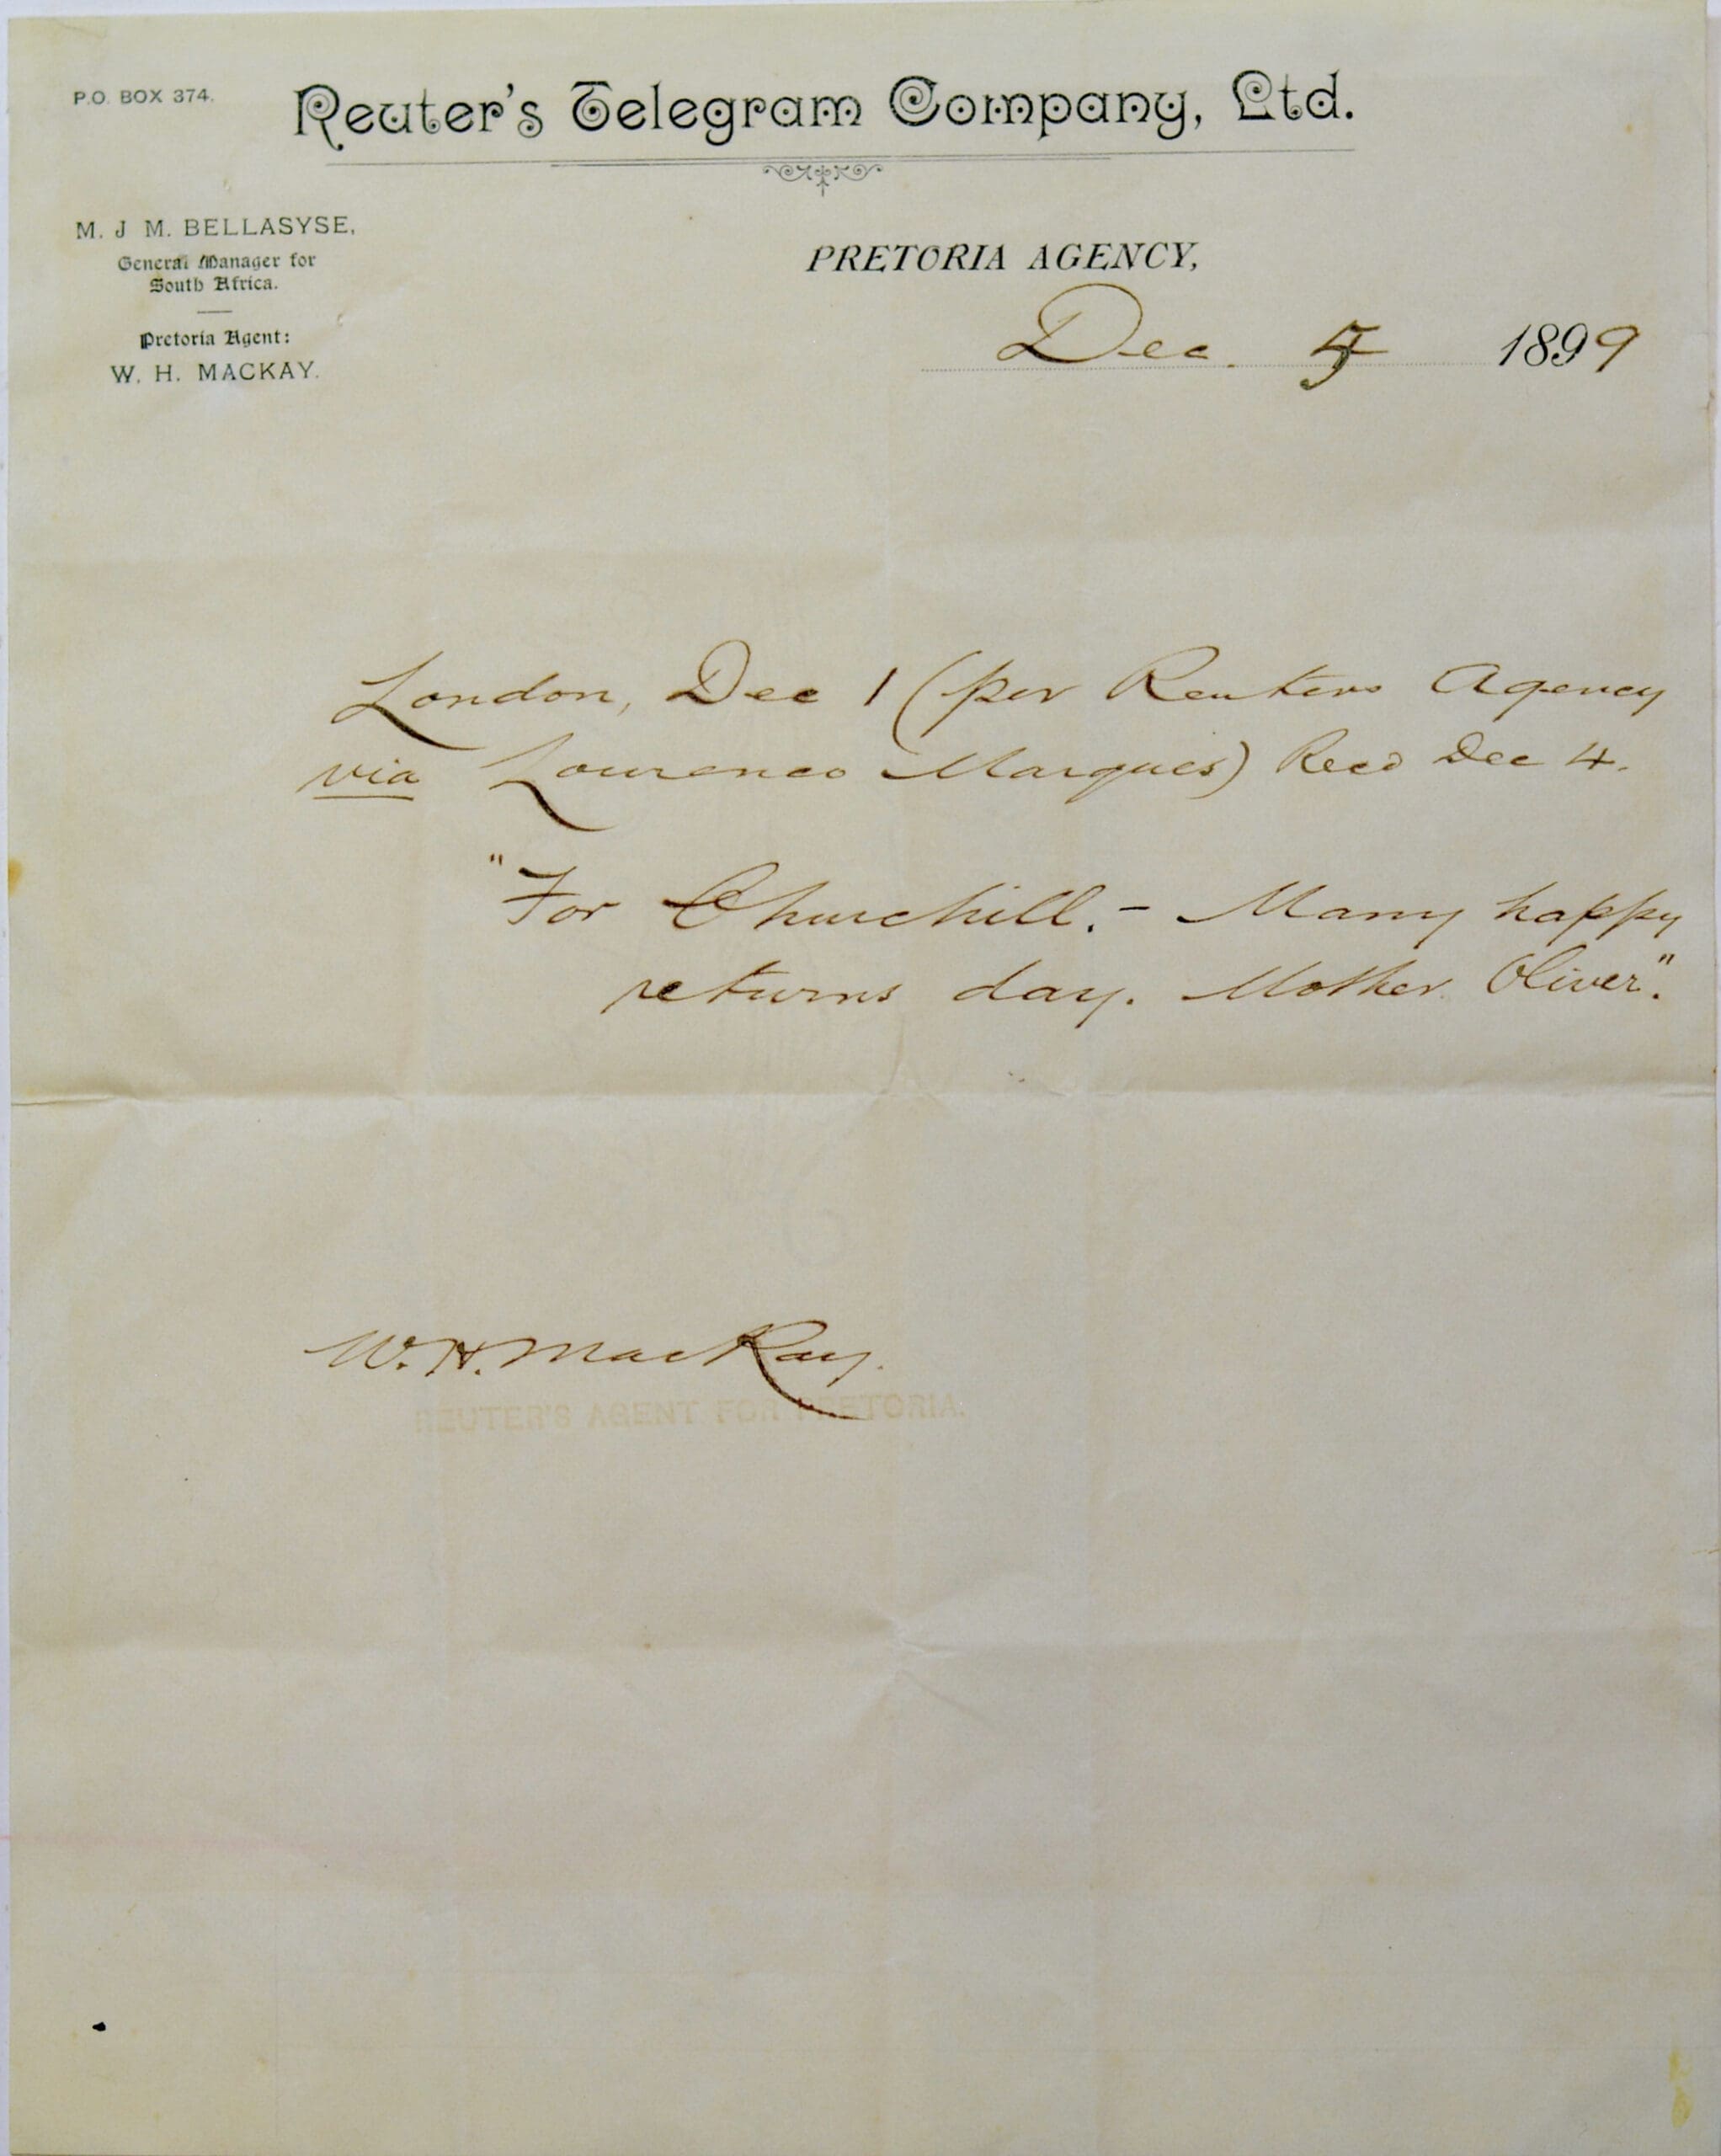 P.O. BOX 374.
Reuter's Telegram Company, Ltd.
M. J M. BELLASYSE,
General Manager for
South Africa.
Pretoria Agent:
W. H. MACKAY.
PRETORIA AGENCY,
Dec. 5 1899
London, Dec 1 (per Reuters Agency
via Lourenco Marques) Recd Dec 4.
"For Churchill. - Many happy
returns day. Mother Oliver".
W. H. MacKay.
REUTER'S AGENT FOR PRETORIA.